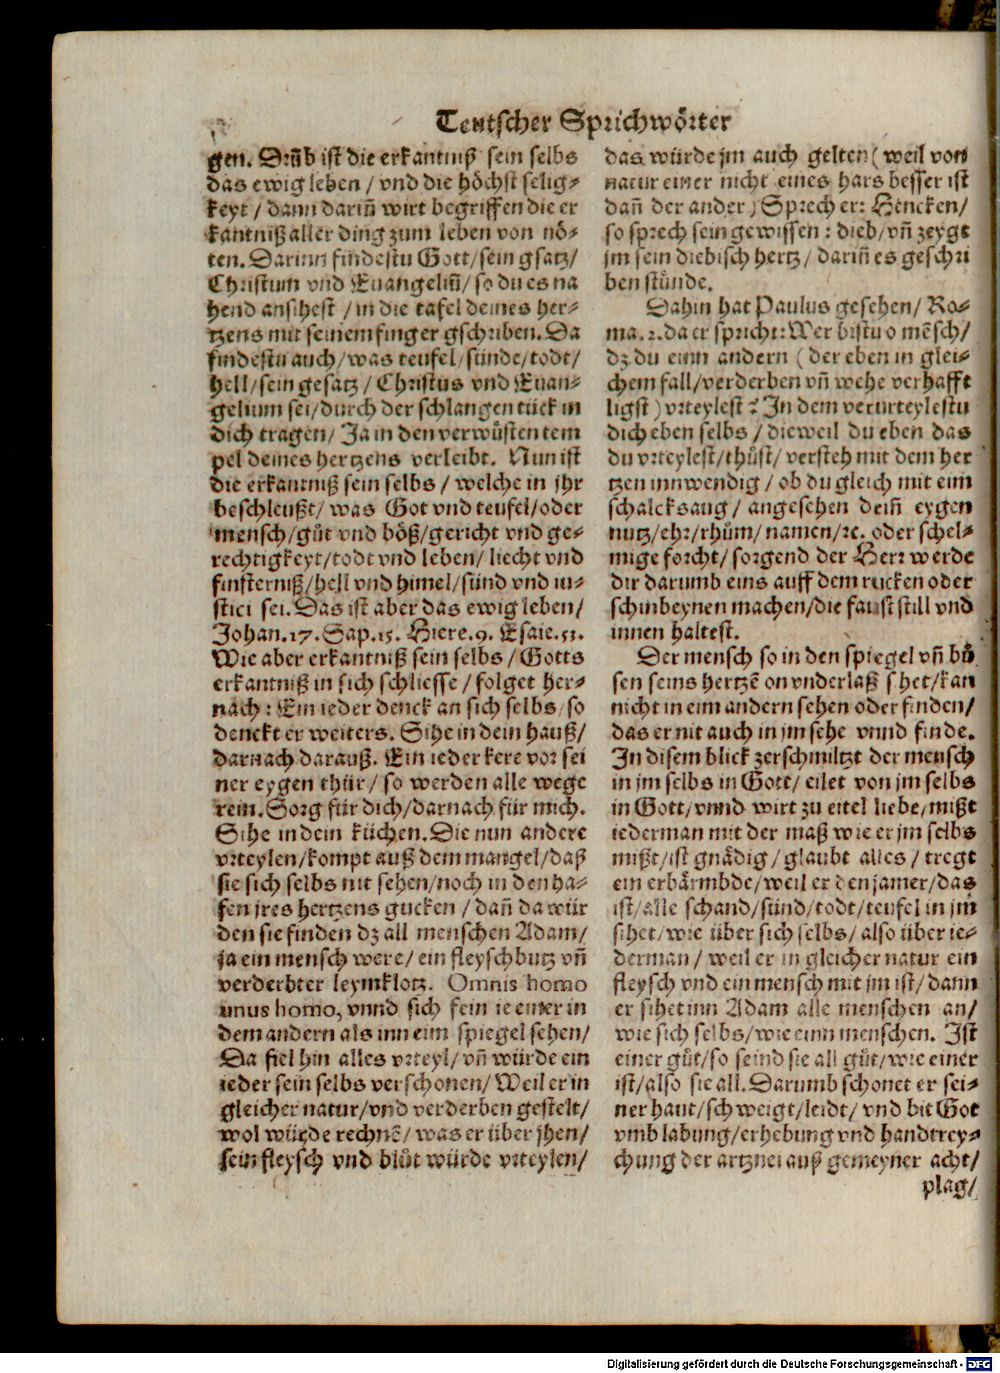 Teutscher Sprichwörter
gen. Drũb ist die erkantniß sein selbs
das ewig leben / vnd die höchst selig⸗
keyt / dann dariñ wirt begriffen die er
kantniß aller ding zum leben von nö⸗
ten. Darinn findestu Gott / sein gsatz /
Christum vnd Euangeliũ / so du es na
hend ansihest / in die tafel deines her⸗
tzens mit seinem finger gschriben. Da
findestu auch / was teufel / sünde / todt /
hell / sein gesatz / Christus vnd Euan⸗
gelium sei / durch der schlangen tück in
dich tragen / Ja in den verwüsten tem
pel deines hertzens verleibt. Nun ist
die erkantniß sein selbs / welche in jhr
beschleußt / was Got vnd teufel / oder
mensch / gůt vnd böß / gericht vnd ge⸗
rechtigkeyt / todt vnd leben / liecht vnd
finsterniß / hell vnd himel / sünd vnd iu⸗
stici sei. Das ist aber das ewig leben /
Johan. 17. Sap. 15. Hiere. 9. Esaie. 51.
Wie aber erkantniß sein selbs / Gotts
erkantniß in sich schliesse / folget her⸗
nach: Ein ieder denck an sich selbs / so
denckt er weiters. Sihe in dein hauß /
darnach darauß. Ein ieder kere vor sei
ner eygen thür / so werden alle wege
rein. Sorg für dich / darnach für mich.
Sihe in dein küchen. Die nun andere
vrteylen / kompt auß dem mangel / daß
sie sich selbs nit sehen / noch in den ha⸗
fen jres hertzens gucken / dañ da wür
den sie finden dz all menschen Adam /
ja ein mensch were / ein fleyschbutz vñ
verderbter leymklotz. Omnis homo
unus homo, vnnd sich fein ie einer in
dem andern als inn eim spiegel sehen /
Da fiel hin alles vrteyl / vñ würde ein
ieder sein selbs verschonen / Weil er in
gleicher natur / vnd verderben gestelt /
wol würde rechnẽ / was er über jhen /
sein fleysch vnd blůt würde vrteylen /
das würde jm auch gelten (weil von
natur einer nicht eines hars besser ist
dañ der ander) Sprech er: Hencken /
so sprech sein gewissen: dieb / vñ zeygt
jm sein diebisch hertz / dariñ es geschri
ben stünde.
Dahin hat Paulus gesehen / Ro⸗
ma. 2. da er spricht: Wer bistu o mẽsch /
dz du einn andern (der eben in glei⸗
chem fall / verderben vñ wehe verhafft
ligst) vrteylest? In dem verurteylestu
dich eben selbs / dieweil du eben das
du vrteylest / thůst / versteh mit dem her
tzen innwendig / ob du gleich mit eim
schalcksaug / angesehen deiñ eygen
nutz / ehr / rhům / namen / ꝛc. oder schel⸗
mige forcht / sorgend der Herr werde
dir darumb eins auff dem rucken oder
schinbeynen machen / die faust still vnd
innen haltest.
Der mensch so in den spiegel vñ bů
sen seins hertzẽ on vnderlaß sihet / kan
nicht in eim andern sehen oder finden /
das er nit auch in jm sehe vnnd finde.
In disem blick zerschmiltzt der mensch
in jm selbs in Gott / eilet von jm selbs
in Gott / vnnd wirt zu eitel liebe / mißt
iederman mit der maß wie er jm selbs
mißt / ist gnädig / glaubt alles / tregt
ein erbärmbde / weil er den jamer / das
ist / alle schand / sünd / todt / teufel in jm
sihet / wie über sich selbs / also über ie⸗
derman / weil er in gleicher natur ein
fleysch vnd ein mensch mit jm ist / dann
er sihet inn Adam alle menschen an /
wie sich selbs / wie einn menschen. Ist
einer gůt / so seind sie all gůt / wie einer
ist / also sie all. Darumb schonet er sei⸗
ner haut / schweigt / leidt / vnd bit Got
vmb labung / erhebung vnd handtrey⸗
chung der artznei auß gemeyner acht /
plag /
Digitalisierung gefördert durch die Deutsche Forschungsgemeinschaft - DFG